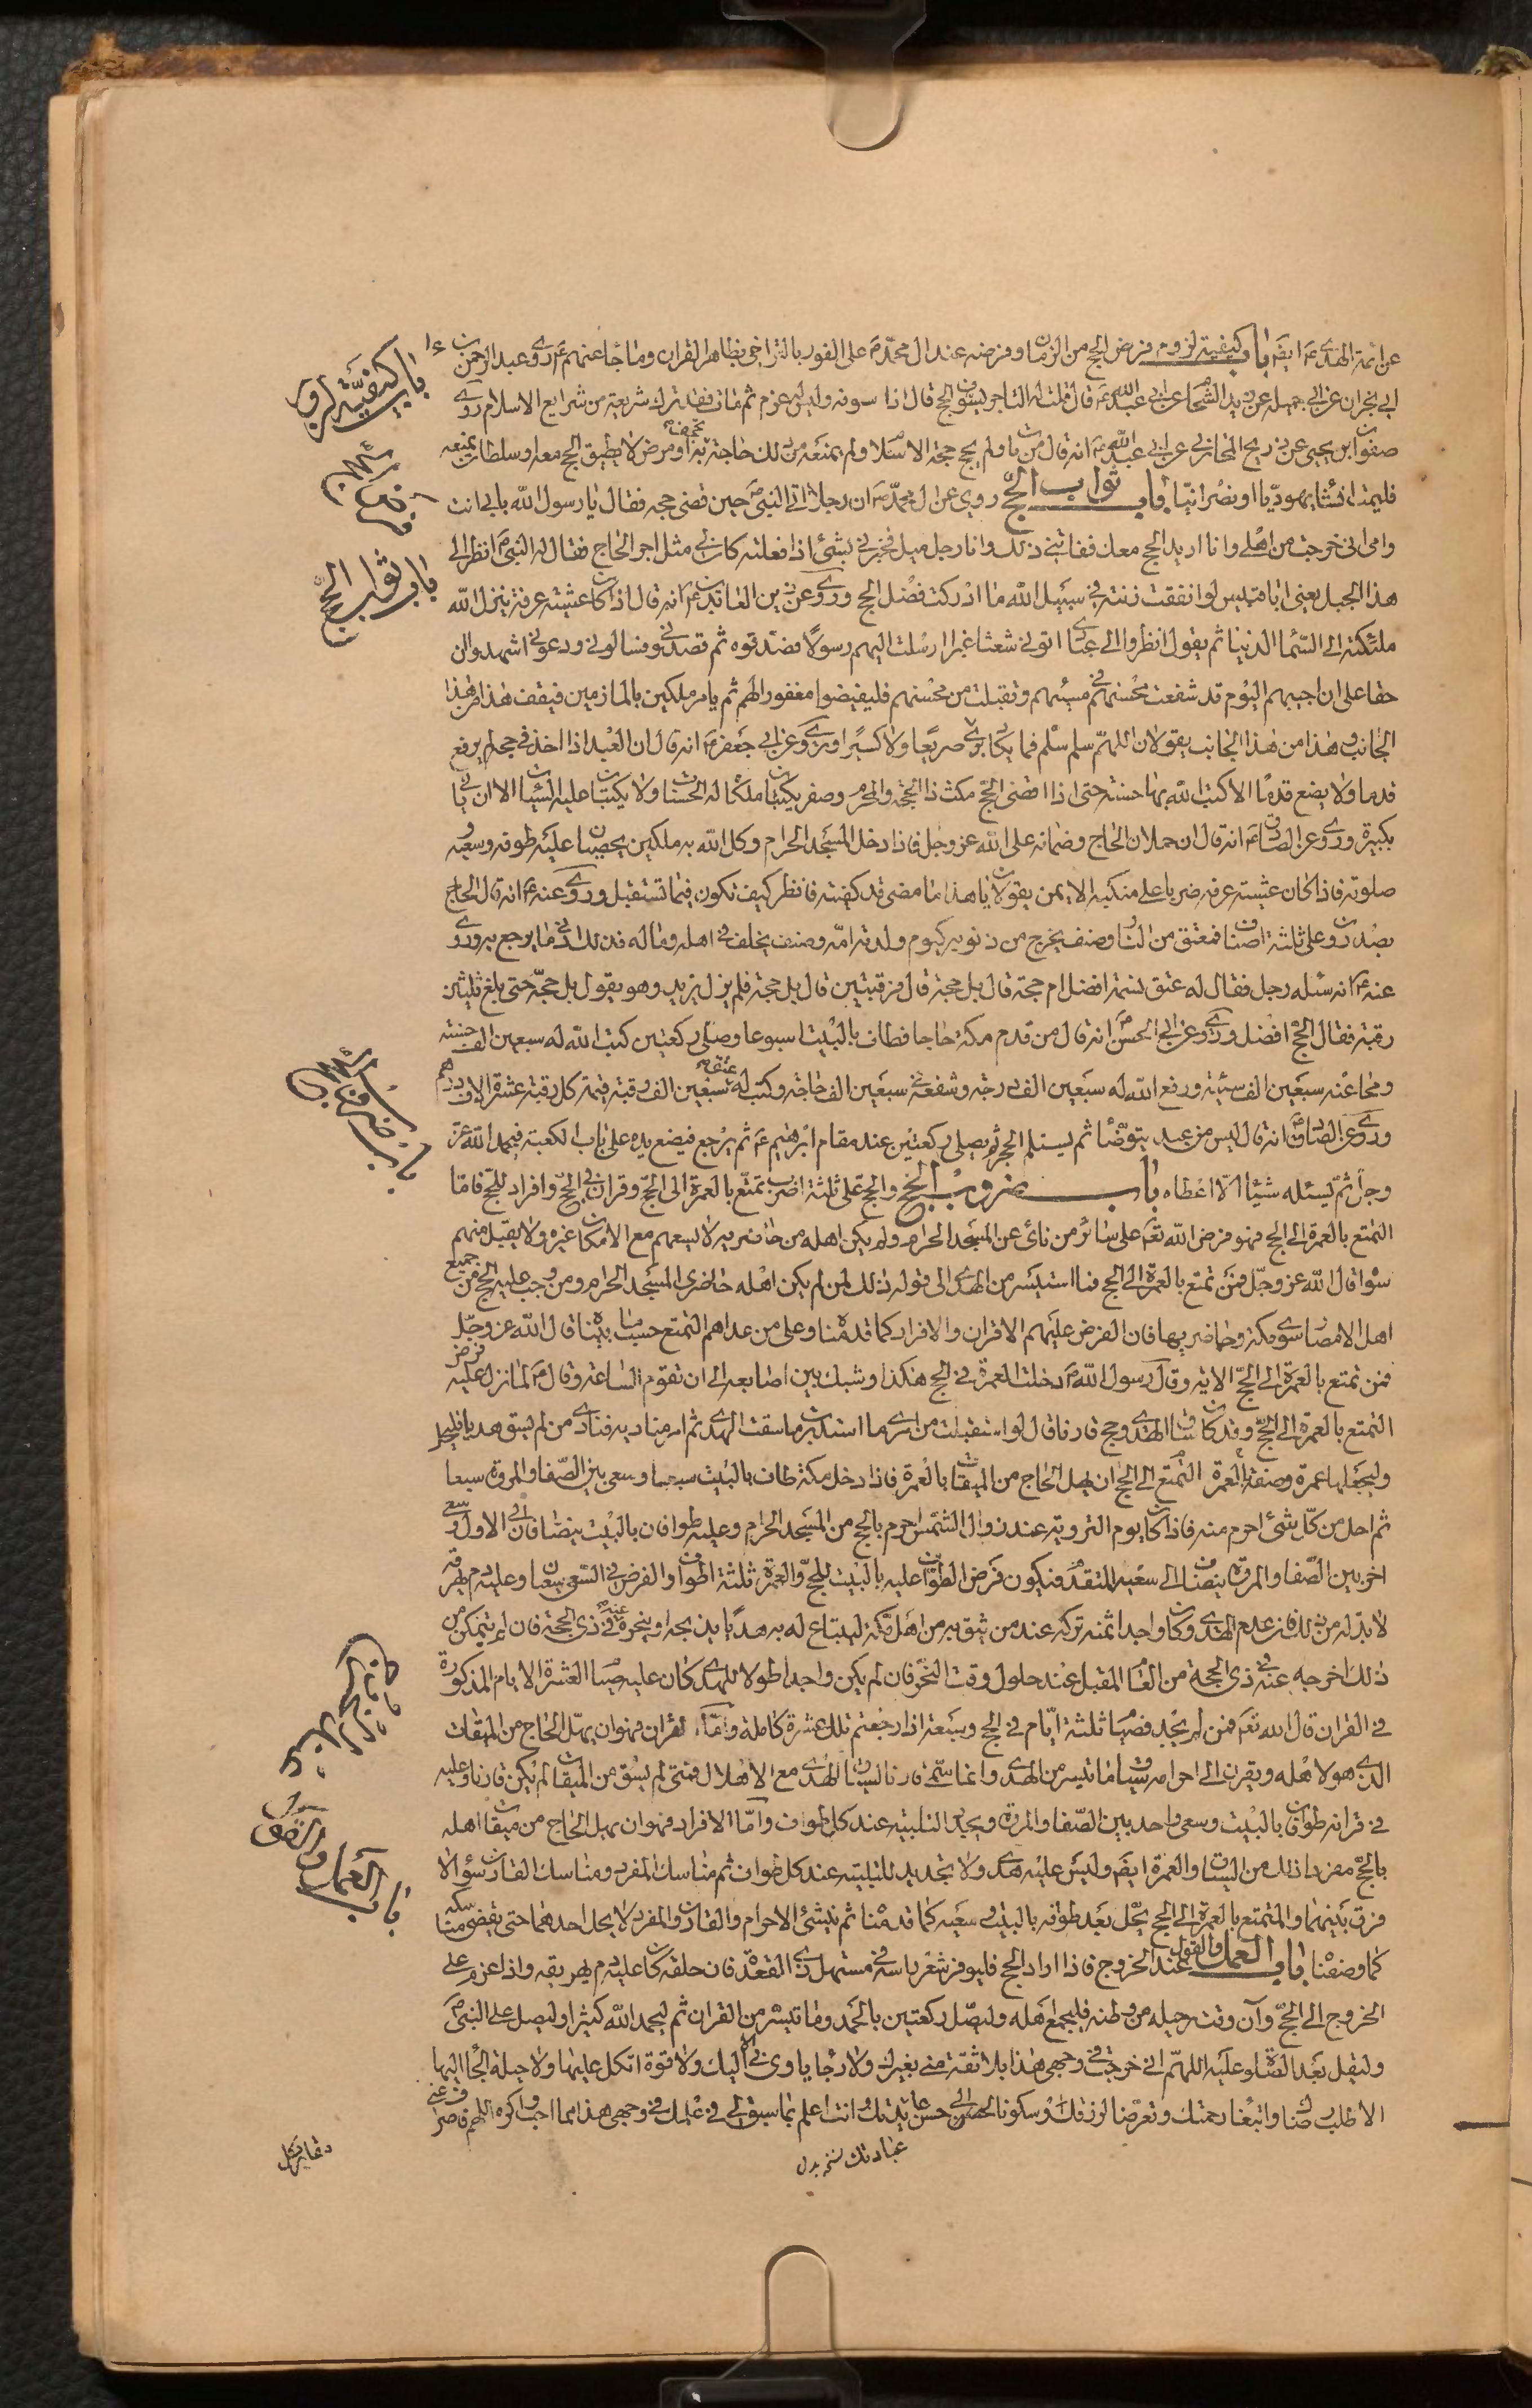 عن ائمة الهدى ع ايضا باب كيفية لزوم فرض الحج من الزمان وفرضه عند ال محمد ص على الفور بالتراخى بظاهر القران وما جاء عنهم ع روى عبد الرحمن بن
ابى نجران عن ابى جميله عن زيد الشحام عن ابى عبد الله ع قال قلت له التاجر يسوف الحج قال اذا سوفه وليس له عزم ثم مات فقد ترك شريعة من شرايع الاسلام روى
صفوان بن يحيى عن ذريح المحاربى عن ابى عبد الله ع انه قال من مات ولم يحج حجة الاسلام ولم يمنعه من ذلك حاجة تجحف به او مرض لا يطيق الحج معه او سلطان يمنعه
فليمت ان شاء يهوديا او نصرانيا باب ثواب الحج روى عن ال محمد ص ان رجلا اتى النبى ص حين قضى حجه فقال يا رسول الله بابى انت
وامى انى خرجت من اهلى وانا اريد الحج معك ففاتنى ذلك وانا رجل ميل فخبرنى بشئ اذا فعلته كان لى مثل اجر الحاج فقال له النبى ص انظر الى
هذا الجبل يعنى ابا قبيس لو انفقت زنته فى سبيل الله ما ادركت فضل الحج وروى عن زين العابدين ع انه قال اذا كان عشية عرفة ينزل الله
ملئكته الى السماء الدنيا ثم يقول انظروا الى عبادى اتونى شعثا غبرا ارسلت اليهم رسولا فصدقوه ثم قصدونى وسالونى ودعونى اشهدوا ان
حقا على ان اجيبهم اليوم قد شفعت محسنهم فى مسيئهم وتقبلت من محسنهم فليفيضوا مغفورا لهم ثم يامر ملكين بالمازمين فيقف هذا من هذا
الجانب وهذا من هذا الجانب يقولان اللهم سلم سلم فما يكاد يرى صريعا ولا كسيرا وروى عن ابى جعفر ع انه قال ان العبد اذا اخذ فى حجه لم يرفع
قدما ولا يضع قدما الا كتب الله بها حسنة حتى اذا قضى الحج مكث ذا الحجة والمحرم وصفر يكتبان ملكاه له الحسنات ولا يكتبان عليه السيئات الا ان ياتى
بكبيرة وروى عن الصادق ع انه قال ان حملان الحاج وضمانه على الله عز وجل فاذا دخل المسجد الحرام وكل الله به ملكين يحصيان عليه طوفه وسعيه و
صلوته فاذا كان عشية عرفة ضربا على منكبه الايمن يقولان يا هذا ما مضى قد كفيته فانظر كيف تكون فيما تستقبل وروى عنه ع انه قال الحاج
يصدرون على ثلثة اصناف فمعتق من النار وصنف يخرج من ذنوبه كيوم ولدته امه وصنف يخلف فى اهله وماله فذلك ادنى ما يرجع به وروى
عنه ع انه سئله رجل فقال له عتق نسمة افضل ام حجة قال بل حجة قال فرقبتين قال بل حجة فلم يزل يزيد وهو يقول بل حجة حتى بلغ ثلثين
رقبة فقال الحج افضل وروى عن ابى الحسن ع انه قال من قدم مكة حاجا فطاف بالبيت اسبوعا وصلى ركعتين كتب الله له سبعين الف حسنة
ومحا عنه سبعين الف سيئة ورفع الله له سبعين الف درجة وشفعه فى سبعين الف حاجة وكتب له عتق سبعين الف رقبة قيمة كل رقبة عشرة الاف درهم
وروى عن الصادق ع انه قال ليس من عبد يتوضا ثم يستلم الحجر ثم يصلى ركعتين عند مقام ابرهيم ع ثم يرجع فيضع يده على باب الكعبة فيحمد الله عز
وجل ثم يسئله شيئا الا اعطاه باب ضروب الحج والحج على ثلثة اضرب تمتع بالعمرة الى الحج وقران فى الحج وافراد للحج فاما
التمتع بالعمرة الى الحج فهو فرض الله تعالى على سائر من نأى عن المسجد الحرام ولم يكن اهله من حاضريه لا يسعهم مع الامكان غيره ولا يقبل منهم
سواه قال الله عز وجل فمن تمتع بالعمرة الى الحج فما استيسر من الهدى الى قوله ذلك لمن لم يكن اهله حاضرى المسجد الحرام ومن وجب عليه الحج من جميع
اهل الامصار سوى مكة وحاضريها فان الفرض عليهم الاقران والافراد كما قدمناه وعلى من عداهم التمتع حسب ما بيناه قال الله عز وجل
فمن تمتع بالعمرة الى الحج الاية وقال رسول الله ص دخلت العمرة فى الحج هكذا وشبك بين اصابعه الى ان تقوم الساعة وقال ص لما نزل عليه فرض
التمتع بالعمرة الى الحج وقد كان ساق الهدى وحج قارنا قال لو استقبلت من امرى ما استدبرت ما سقت الهدى ثم امر مناديه فنادى من لم يسق هديا فليحل
وليجعلها عمرة وصفة التمتع بالعمرة الى الحج ان يهل الحاج من الميقات بالعمرة فاذا دخل مكة طاف بالبيت سبعا وسعى بين الصفا والمروة سبعا
ثم احل من كل شئ احرم منه فاذا كان يوم التروية عند زوال الشمس احرم بالحج من المسجد الحرام وعليه طوافان بالبيت ينضافان الى الاول وسعى
اخر بين الصفا والمروة ينضاف الى سعيه المتقدم فيكون فرض الطواف عليه بالبيت للحج والعمرة ثلثة اطواف والفرض فى السعى سعيان وعليه دم يهرقه
لا بد له من ذلك فان عدم الهدى وكان واجدا ثمنه تركه عند من يثق به من اهل مكة ليبتاع له به هديا يذبحه او ينحره عنه فى ذى الحجة فان لم يتمكن من
ذلك اخرجه عنه فى ذى الحجة من العام المقبل عند حلول وقت النحر فان لم يكن واجدا طولا للهدى كان عليه صيام العشرة الايام المذكورة
فى القران قال الله تعالى فمن لم يجد فصيام ثلثة ايام فى الحج وسبعة اذا رجعتم تلك عشرة كاملة واما القران فهو ان يهل الحاج من الميقات
الذى هو لاهله ويقرن الى احرامه سياق ما تيسر من الهدى وانما سمى قارنا لسياق الهدى مع الاهلال فمتى لم يسق من الميقات لم يكن قارنا وعليه
فى قرانه طوافان بالبيت وسعى واحد بين الصفا والمروة ويجدد التلبية عند كل طواف واما الافراد فهو ان يهل الحاج من ميقات اهله
بالحج مفردا ذلك من السياق والعمرة ايضا وليس عليه هدى ولا تجديد للتلبية عند كل طواف ثم مناسك المفرد ومناسك القارن سواء لا
فرق بينهما والمتمتع بالعمرة الى الحج يحل بعد طوفه بالبيت وسعيه كما قدمناه ثم ينشئ الاحرام والقارن والمفرد لا يحل احدهما حتى يقضى مناسكه
كما وصفناه باب العمل والقول عند الخروج فاذا اراد الحج فليوفر شعر راسه فى مستهل ذى القعدة فان حلقه كان عليه دم يهريقه واذا عزم على
الخروج الى الحج وآن وقت رحيله من وطنه فليجمع اهله وليصل ركعتين بالحمد وما تيسر من القران ثم ليحمد الله كثيرا وليصل على النبى ص
وليقل بعد الصلوة عليه اللهم انى خرجت فى وجهى هذا بلا ثقة منى بغيرك ولا رجاء ياوى بى الا اليك ولا قوة اتكل عليها ولا حيلة الجا اليها
الا طلب رضاك وابتغاء رحمتك وتعرضا لرزقك وسكونا الى حسن عايدتك وانت اعلم بما سبق لى فى علمك فى وجهى هذا مما احب واكره اللهم فاصرف عنى
عبادتك نسخه بدل
باب كيفية لزوم
باب ثواب الحج
باب ضروب الحج
باب العمل والقول